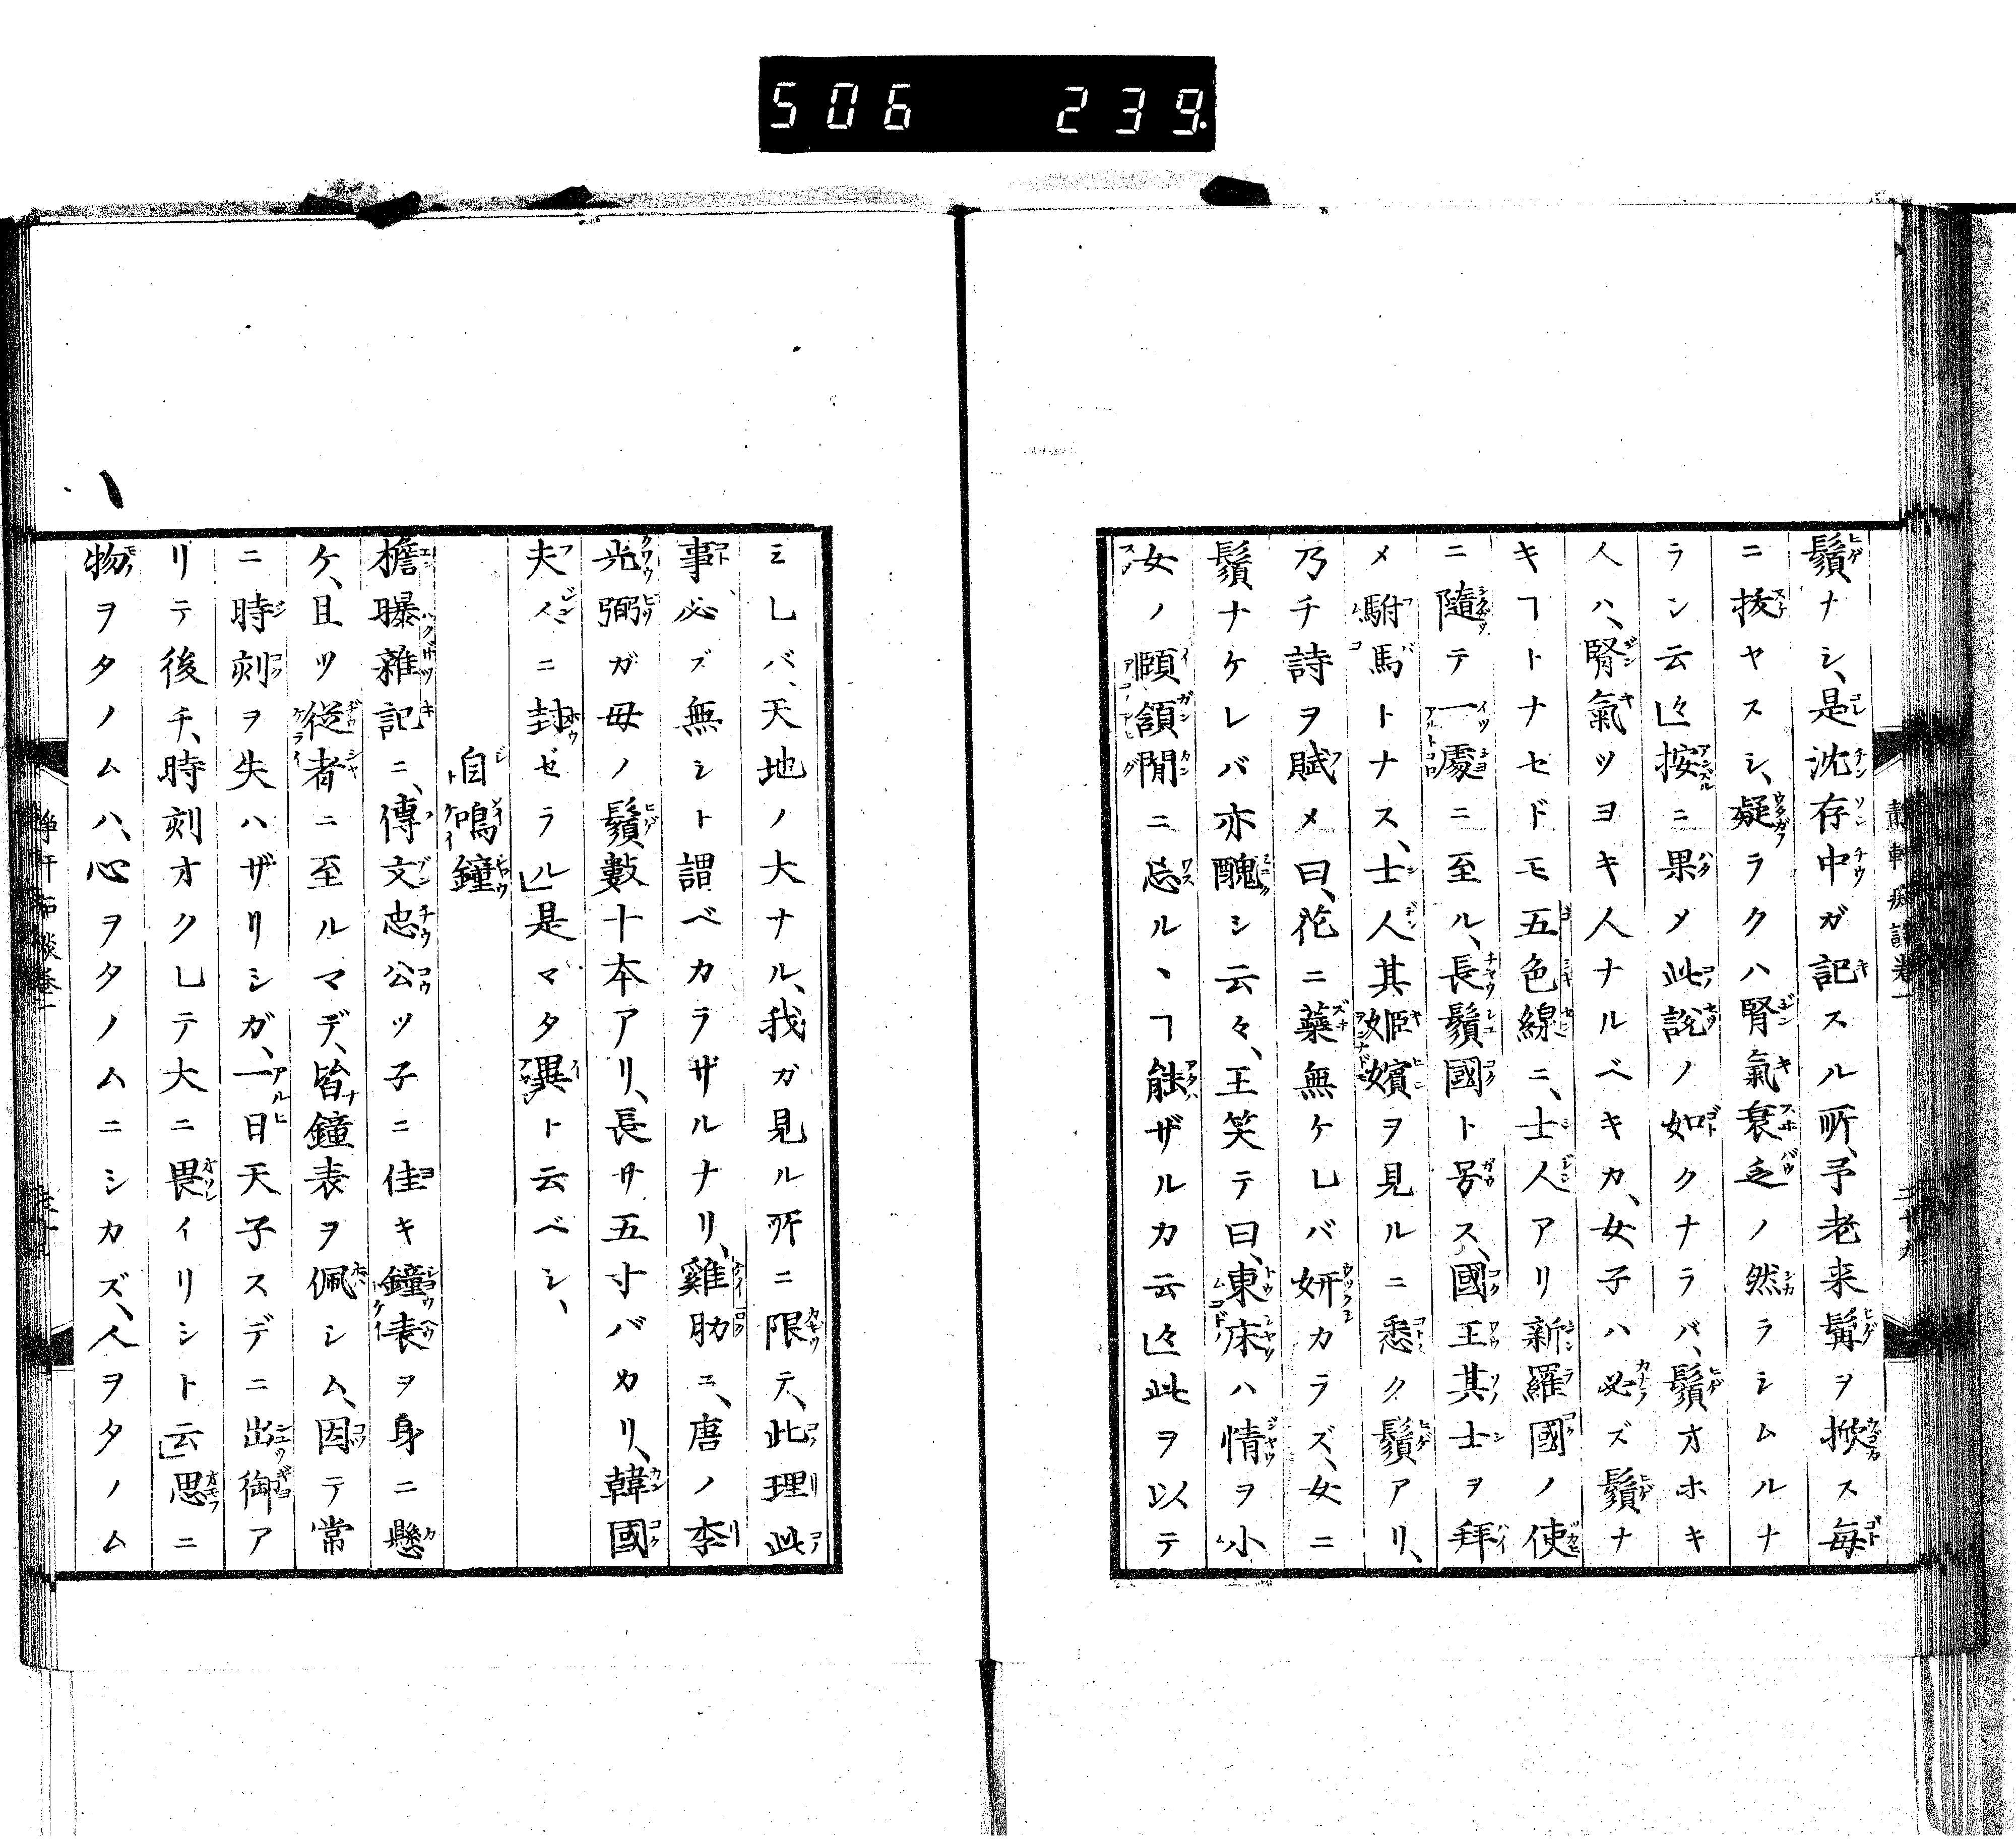 506 239
鬚ナシ、是沈存中ガ記スル所、予老来髯ヲ掀ス毎
ニ抜ヤスシ、凝ラクハ腎氣衰乏ノ然ラシムルナ
ラン云々按ニ果メ此説ノ如クナラバ、鬚オホキ
人ハ、腎氣ツヨキ人ナルベキカ、女子ハ必ズ鬚ナ
キヿトナセドモ五色線ニ、士人アリ新羅國ノ使
ニ隨テ一處ニ至ル、長鬚國ト号ス、國王其士ヲ拜
メ駙馬トナス、士人其姫嬪ヲ見ルニ悉ク鬚アリ、
乃チ詩ヲ賦メ曰、花ニ蘂無ケレバ妍カラズ、女ニ
鬚ナケレバ亦醜シ云々、王笑テ曰、東床ハ情ヲ小
女ノ頤頷間ニ忘ルヽヿ能ザルカ云々此ヲ以テ
ミレバ、天地ノ大ナル、我ガ見ル所ニ限テ、此理此
事必ズ無シト謂ベカラザルナリ、雞肋ニ、唐ノ李
光弼ガ母ノ鬚數十本アリ、長サ五寸バカリ、韓國
夫人ニ封ゼラル」是マタ異ト云ベシ、
自鳴鐘
檐曝雜記ニ、傳文忠公ツ子ニ佳キ鐘表ヲ身ニ懸
ケ、且ツ從者ニ至ルマデ、皆鐘表ヲ佩シム、因テ常
ニ時刻ヲ失ハザリシガ、一日天子スデニ出御ア
リテ後チ、時刻オクレテ大ニ畏イリシト云」思ニ
物ヲタノムハ、心ヲタノムニシカズ、人ヲタノム